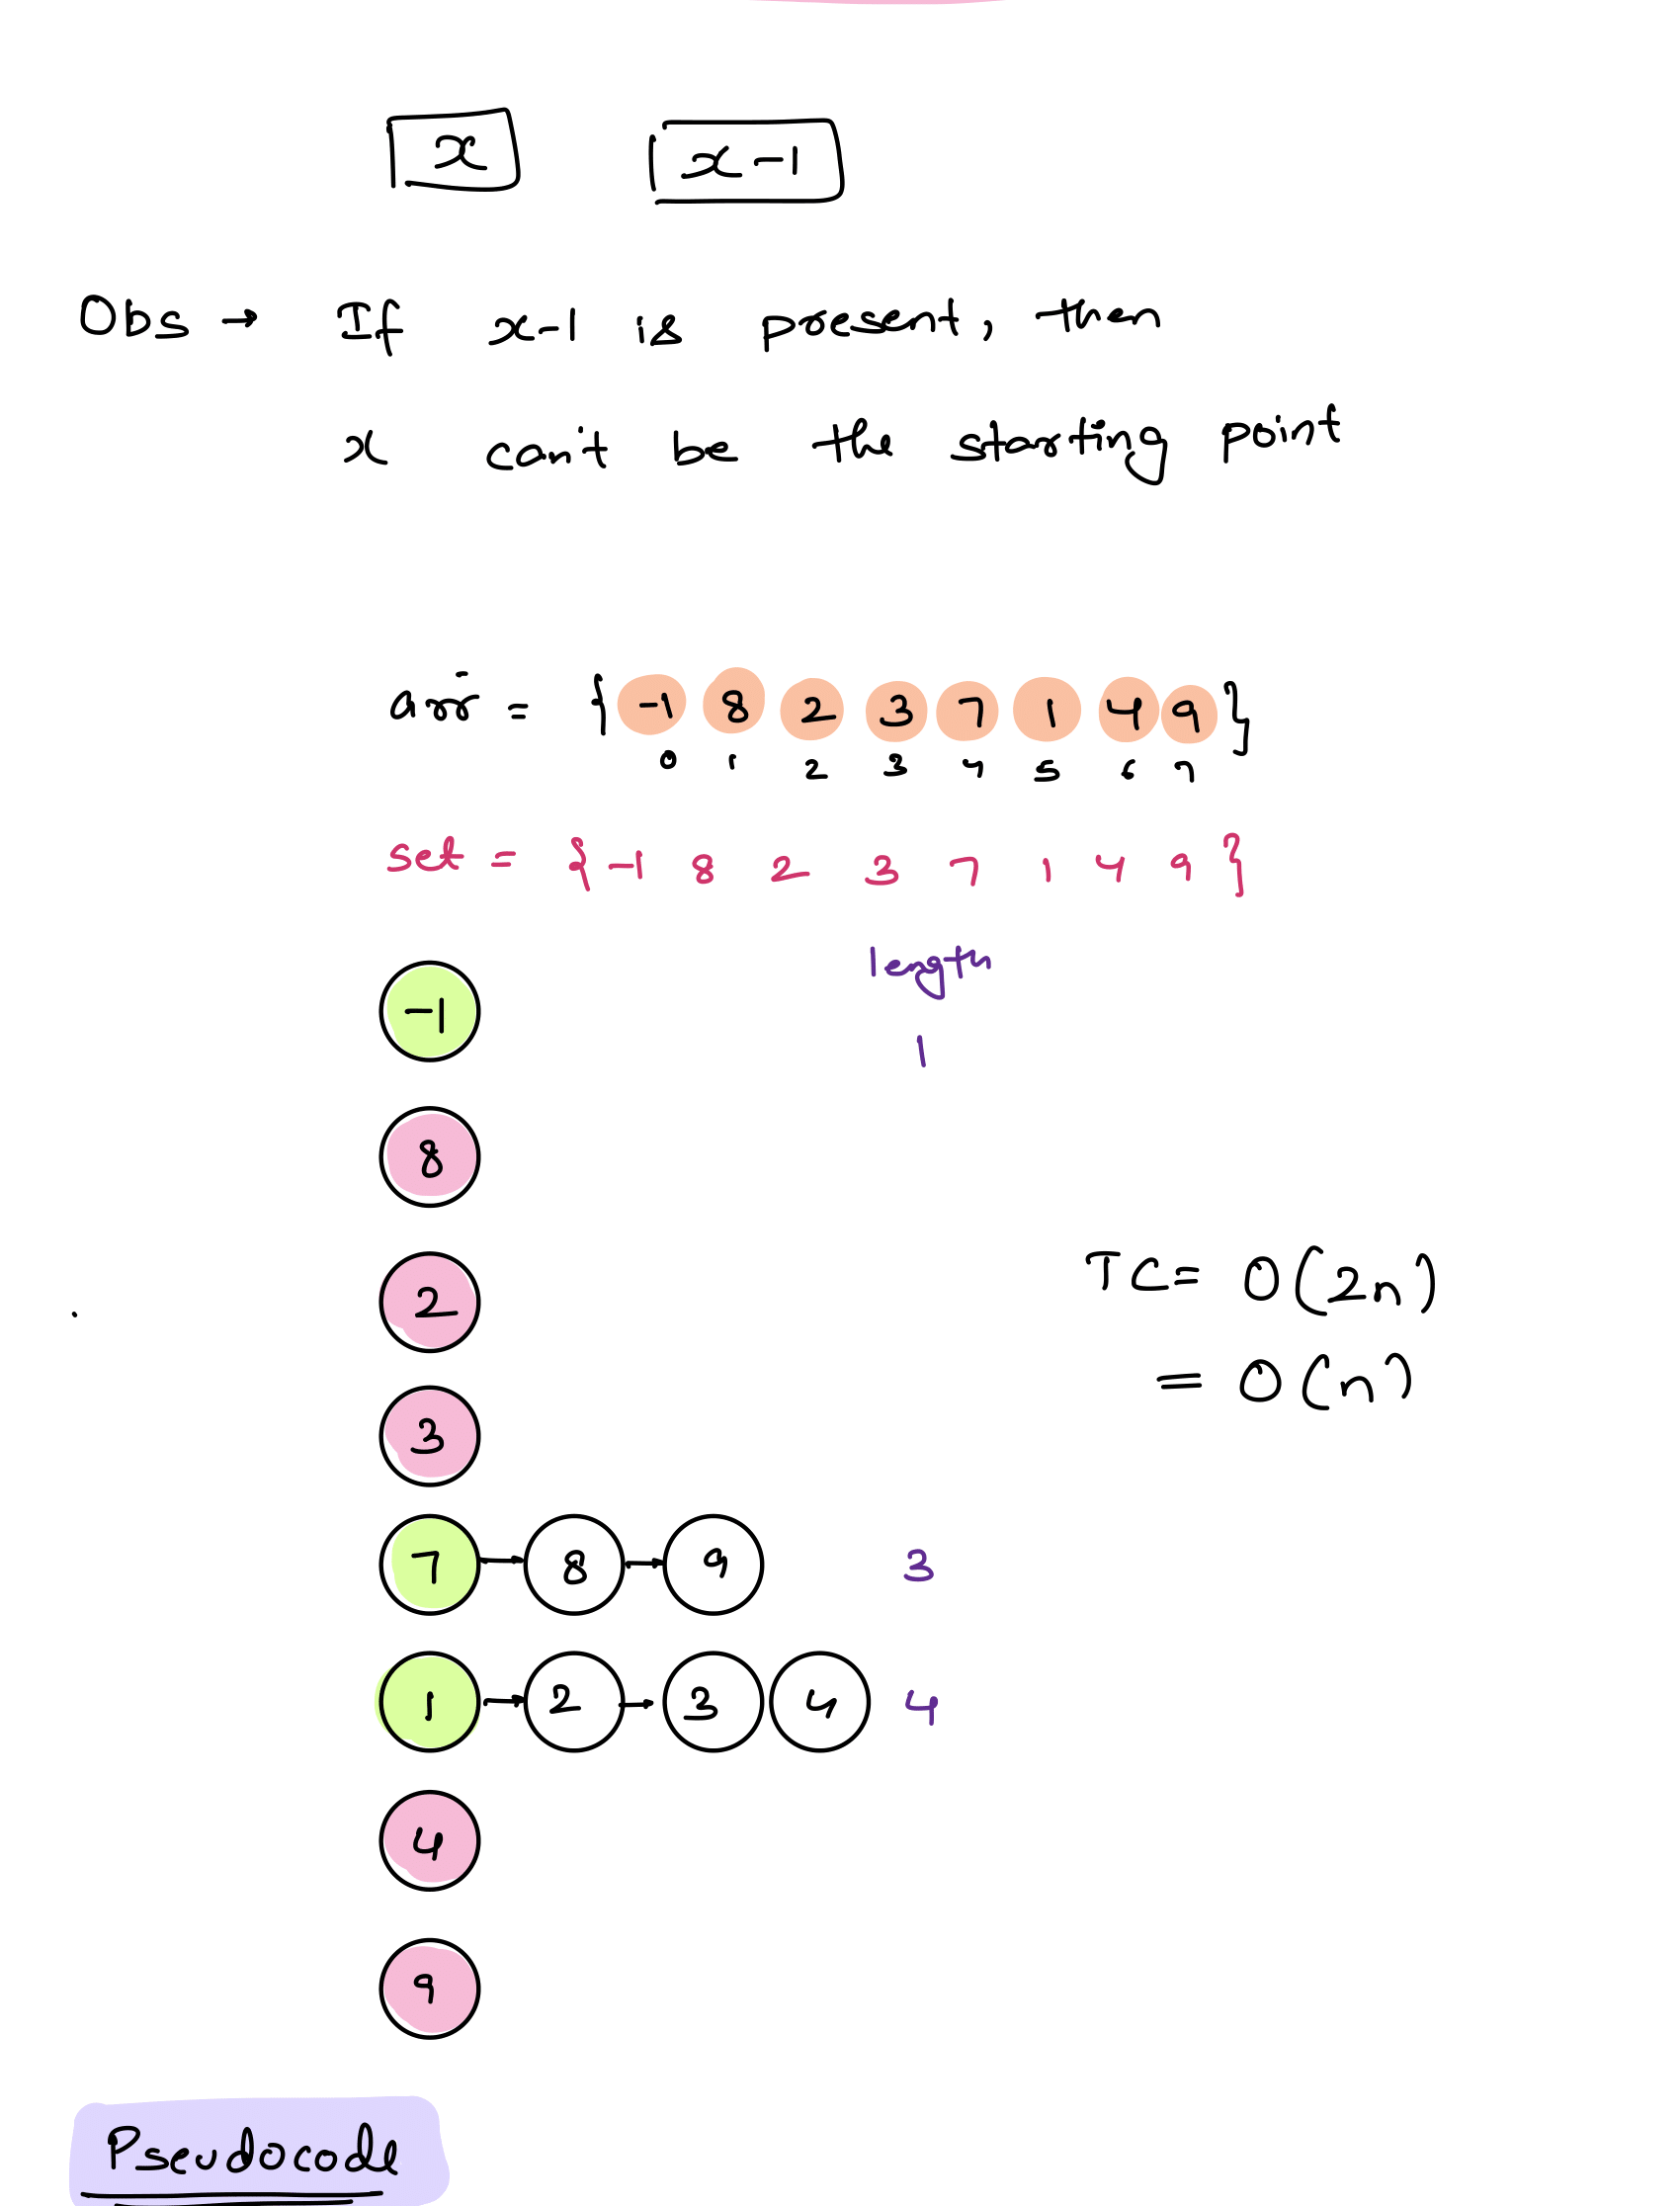 x x-1
Obs → If x-1 is present, then
x can't be the starting point
arr = { -1 8 2 3 7 1 4 9 }
0 1 2 3 4 5 6 7
set = { -1 8 2 3 7 1 4 9 }
length
-1 1
8
2
TC = O(2n)
= O(n)
3
7 → 8 → 9 3
1 → 2 → 3 4 4
4
9
Pseudocode